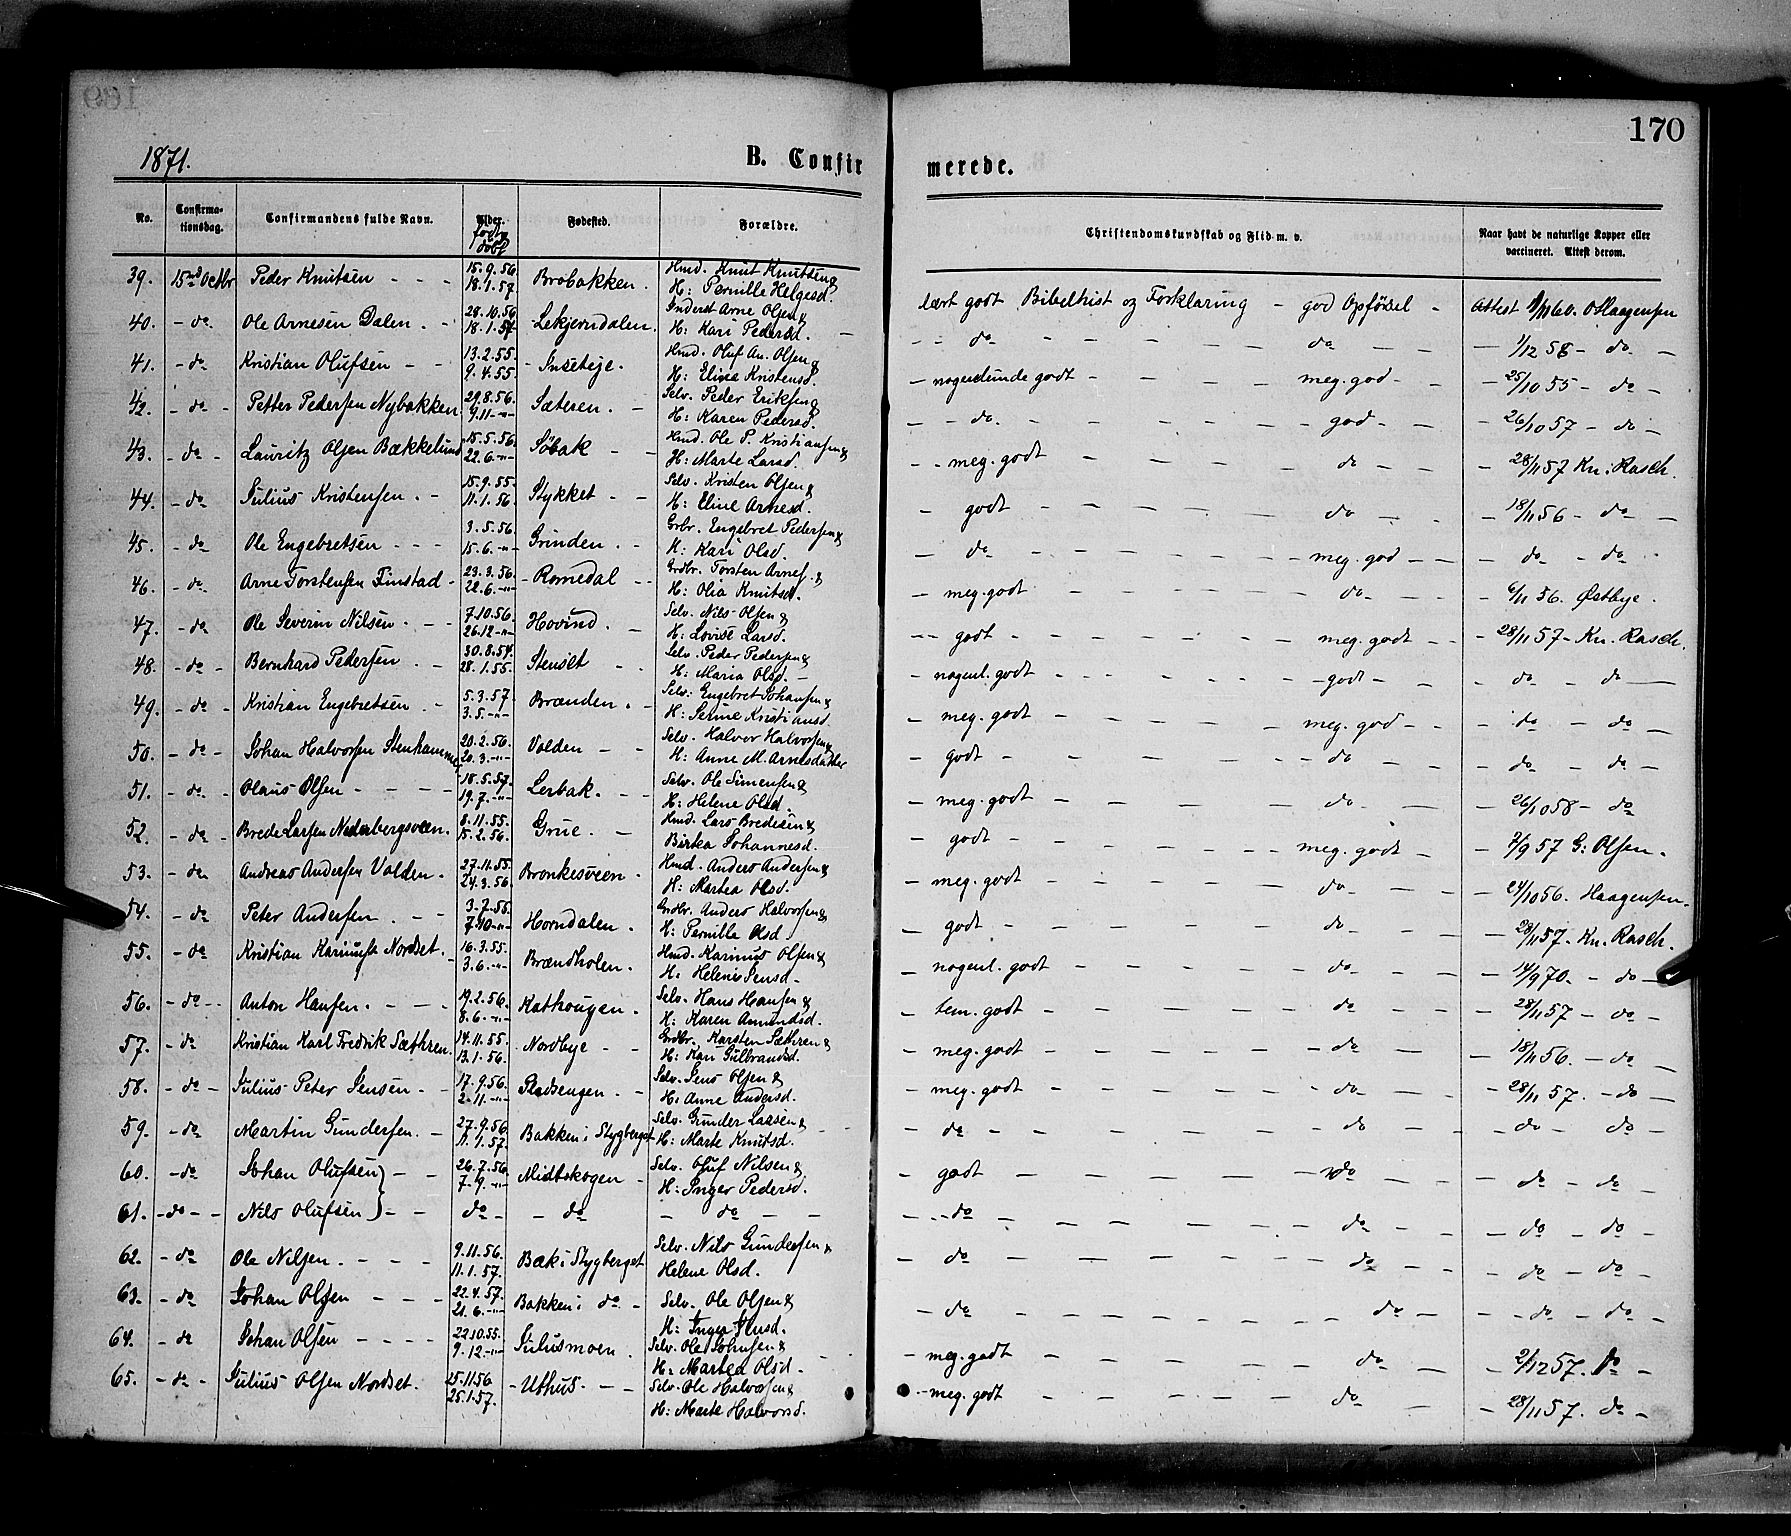 170
1871.
B. Confirmerede.
No. Confirmationsdag. Confirmandens fulde Navn. Alder. født døbt Fødested. Forældre. Christendomskundskab og Flid m. v. Naar havt de naturlige Kopper eller vaccineret. Attest derom.
39. 15de Octbr Peder Knutsen - - - 15.9.56 18.1.57 Brobakken. Hmd. Knut Knutsen & H: Pernille Helgesd. lært godt Bibelhist og Forklaring - god Opførsel - Attest 1/1160. O Haagensen
40. - do. Ole Arnesen Dalen. - - 28.10.56 18.1.57 Lekjerndalen. Inderst Arne Olsen & H: Kari Pedersd. - - - do - - - do - - - 1/12 58 - do -
41. - do - Kristian Olufsen - - 13.2.55. 9.4.55. - Inseteje. Hmd. Oluf An. Olsen & H: Elisea Kristensd. - nogenlunde godt - - - meg. god - - - 25/10 55 - do -
42. - do - Petter Pedersen Nybakken. 29.8.56. 9.11 -"- Sæteren. - Selv. Peder Eriksen & H: Karen Pedersd. - - do. - - - god - - - 26/10 57 - do -
43. - do - Lauritz Olsen Bækkelund 15.5.56. 22.6. -"- Søbak - - Hmd. Ole P. Kristiansen & H: Marte Larsd. - - meg. godt - - - do - - - 28/11 57 Kn. Rasch.
44. - do Julius Kristensen. - 15.9.55. 11.1.56. Stykket - - Selv. Kristen Olsen & H: Eline Arnesd. - godt - - - do - - - 18/11 56 - do -
45. - do Ole Engebretsen - - - 3.5.56. 15.6. -"- Grinden. - Grbr. Engebret Pedersen & H: Kari Olsd. - do - - - meg. god - - - do - do
46. - do. Arne Torstensen Finstad - 23.3.56. 22.6. -"- - Romedal - - Grdbr. Torsten Arnes. & H: Olia Knutsd. - meg. godt - - - do - - - 6/11 56. Østbye.
47. - do - Ole Severin Nilsen - - - 7.10.56. 26.12 -"- Hovind. - Selv. Nils Olsen & H: Lovise Larsd. -- godt - - - meg. godt - - - 28/11 57 - Kn. Rasch.
48. - do - Bernhard Pedersen. - - 30.8.54. 28.1.55. Stenset - - Selv. Peder Pedersen & H: Maria Olsd. - - nogenl. godt - - - god - - - do - do
49. - do - Kristian Engebretsen - - 5.3.57. 3.5. -"- Brænden. - Selv. Engebret Johansen & H: Serine Kristiansd. - meg. godt - - - meg. god - - - do - do
50. - do - Johan Halvorsen Stenhammer 20.2.56. 20.3. -"- Volden - - Selv. Halvor Halvorsen & H: Anne M. Arnesdatter - godt - - - do - - - do - do -
51. - do. - Olaus Olsen - - - - 18.5.57. 19.7. -"- Lerbak. - - Selv. Ole Simensen & H: Helene Olsd. - meg. godt - - - do - - - 26/10 58 - do
52. - do - Brede Larsen Nederbergsveen. 8.11.55. 15.2.56. Grue. - Hmd. Lars Bredesen & Birtea Johannesd. - godt - - - meg. godt - - 2/9 57 G: Olsen.
53. - do - Andreas Andersen Volden. - 27.11.55. 24.3.56. Bronkesveen - Hmd. Anders Andersen & H: Martea Olsd. - meg. godt - - - do - - - 24/10 56. Haagensen.
54. - do Peter Andersen. - - - 7.10 -"- Horndalen. Grdbr. Anders Halvorsen & H: Pernille Olsd - godt - - - do - - - 28/11 57. Kn. Rasch.
55. - do Kristian Nordset. - 16.3.55. 3.6. -"- Brændholen. Hmd. Karinus Olsen & H: Helene Jensd - - nogenl. godt - - - do - - - 14/9 70. - do -
56. - do - Anton Hansen. - - - 19.2.56. 8.6. -"- Kathougen. Selv. Hans Hansen & H: Karen Amundsd. - tem. godt - - - do - - - 28/11 57 - do -
57. - do Kristian Karl Fredrik Sæthren. 14.11.55. 13.1.56. - Nordbye - - Grdbr. Karsten Sæthren & H: Kari Gulbrandsd. - meg. godt - - - do - - - 18/11 56. - do
58. - do - Julius Peter Jensen - - 17.9.56. 2.11. -"- Pladsengen. - Selv. Jens Olsen & H: Anne Andersd. - meg. godt - - - do - - - 28/11 57. - do -
59. - do - Martin Gundersen. - 27.9.56 11.1.57. Bakken i Stygberget Selv. Gunder Laasen & H: Marte Knutsd. - do - - - do - - do - do -
60. - do Johan Olufsen - - 26.7.56 7.9. -"- Midtskogen - Selv. Oluf Nilsen & H: Inger Pedersd. - godt - - - do - - - do - do -
61. - do - - Nils Olufsen - - do - - do - do - - - do - - - do - - - do - do -
62. - do Ole Nilsen. - - - 9.11.56. 11.1.57. Bæk i Stygberget Selv. Nils Gundersen & Helene Olsd. - do - - - do - - - do - do -
63. - do Johan Olsen - - - 22.4.57. 21.6. -"- Bakken i do - Selv. Ole Olsen & H: Inger Jensd. - do - - - do - - do - do -
64. - do Johan Olsen - - - - 22 10.55. 9.12. -"- Julusmoen. Selv. Ole Johnsen & H: Martea Olsd - - meg. godt - - - do - - 2/12 57. do -
65. - do - - Julius Olsen Nordset. 25.11 56 25.1.57. - Uthus. - - Selv. Ole Halvorsen & H: Marte Halvorsd. - meg. godt - - - do - - 28/11 57. do -